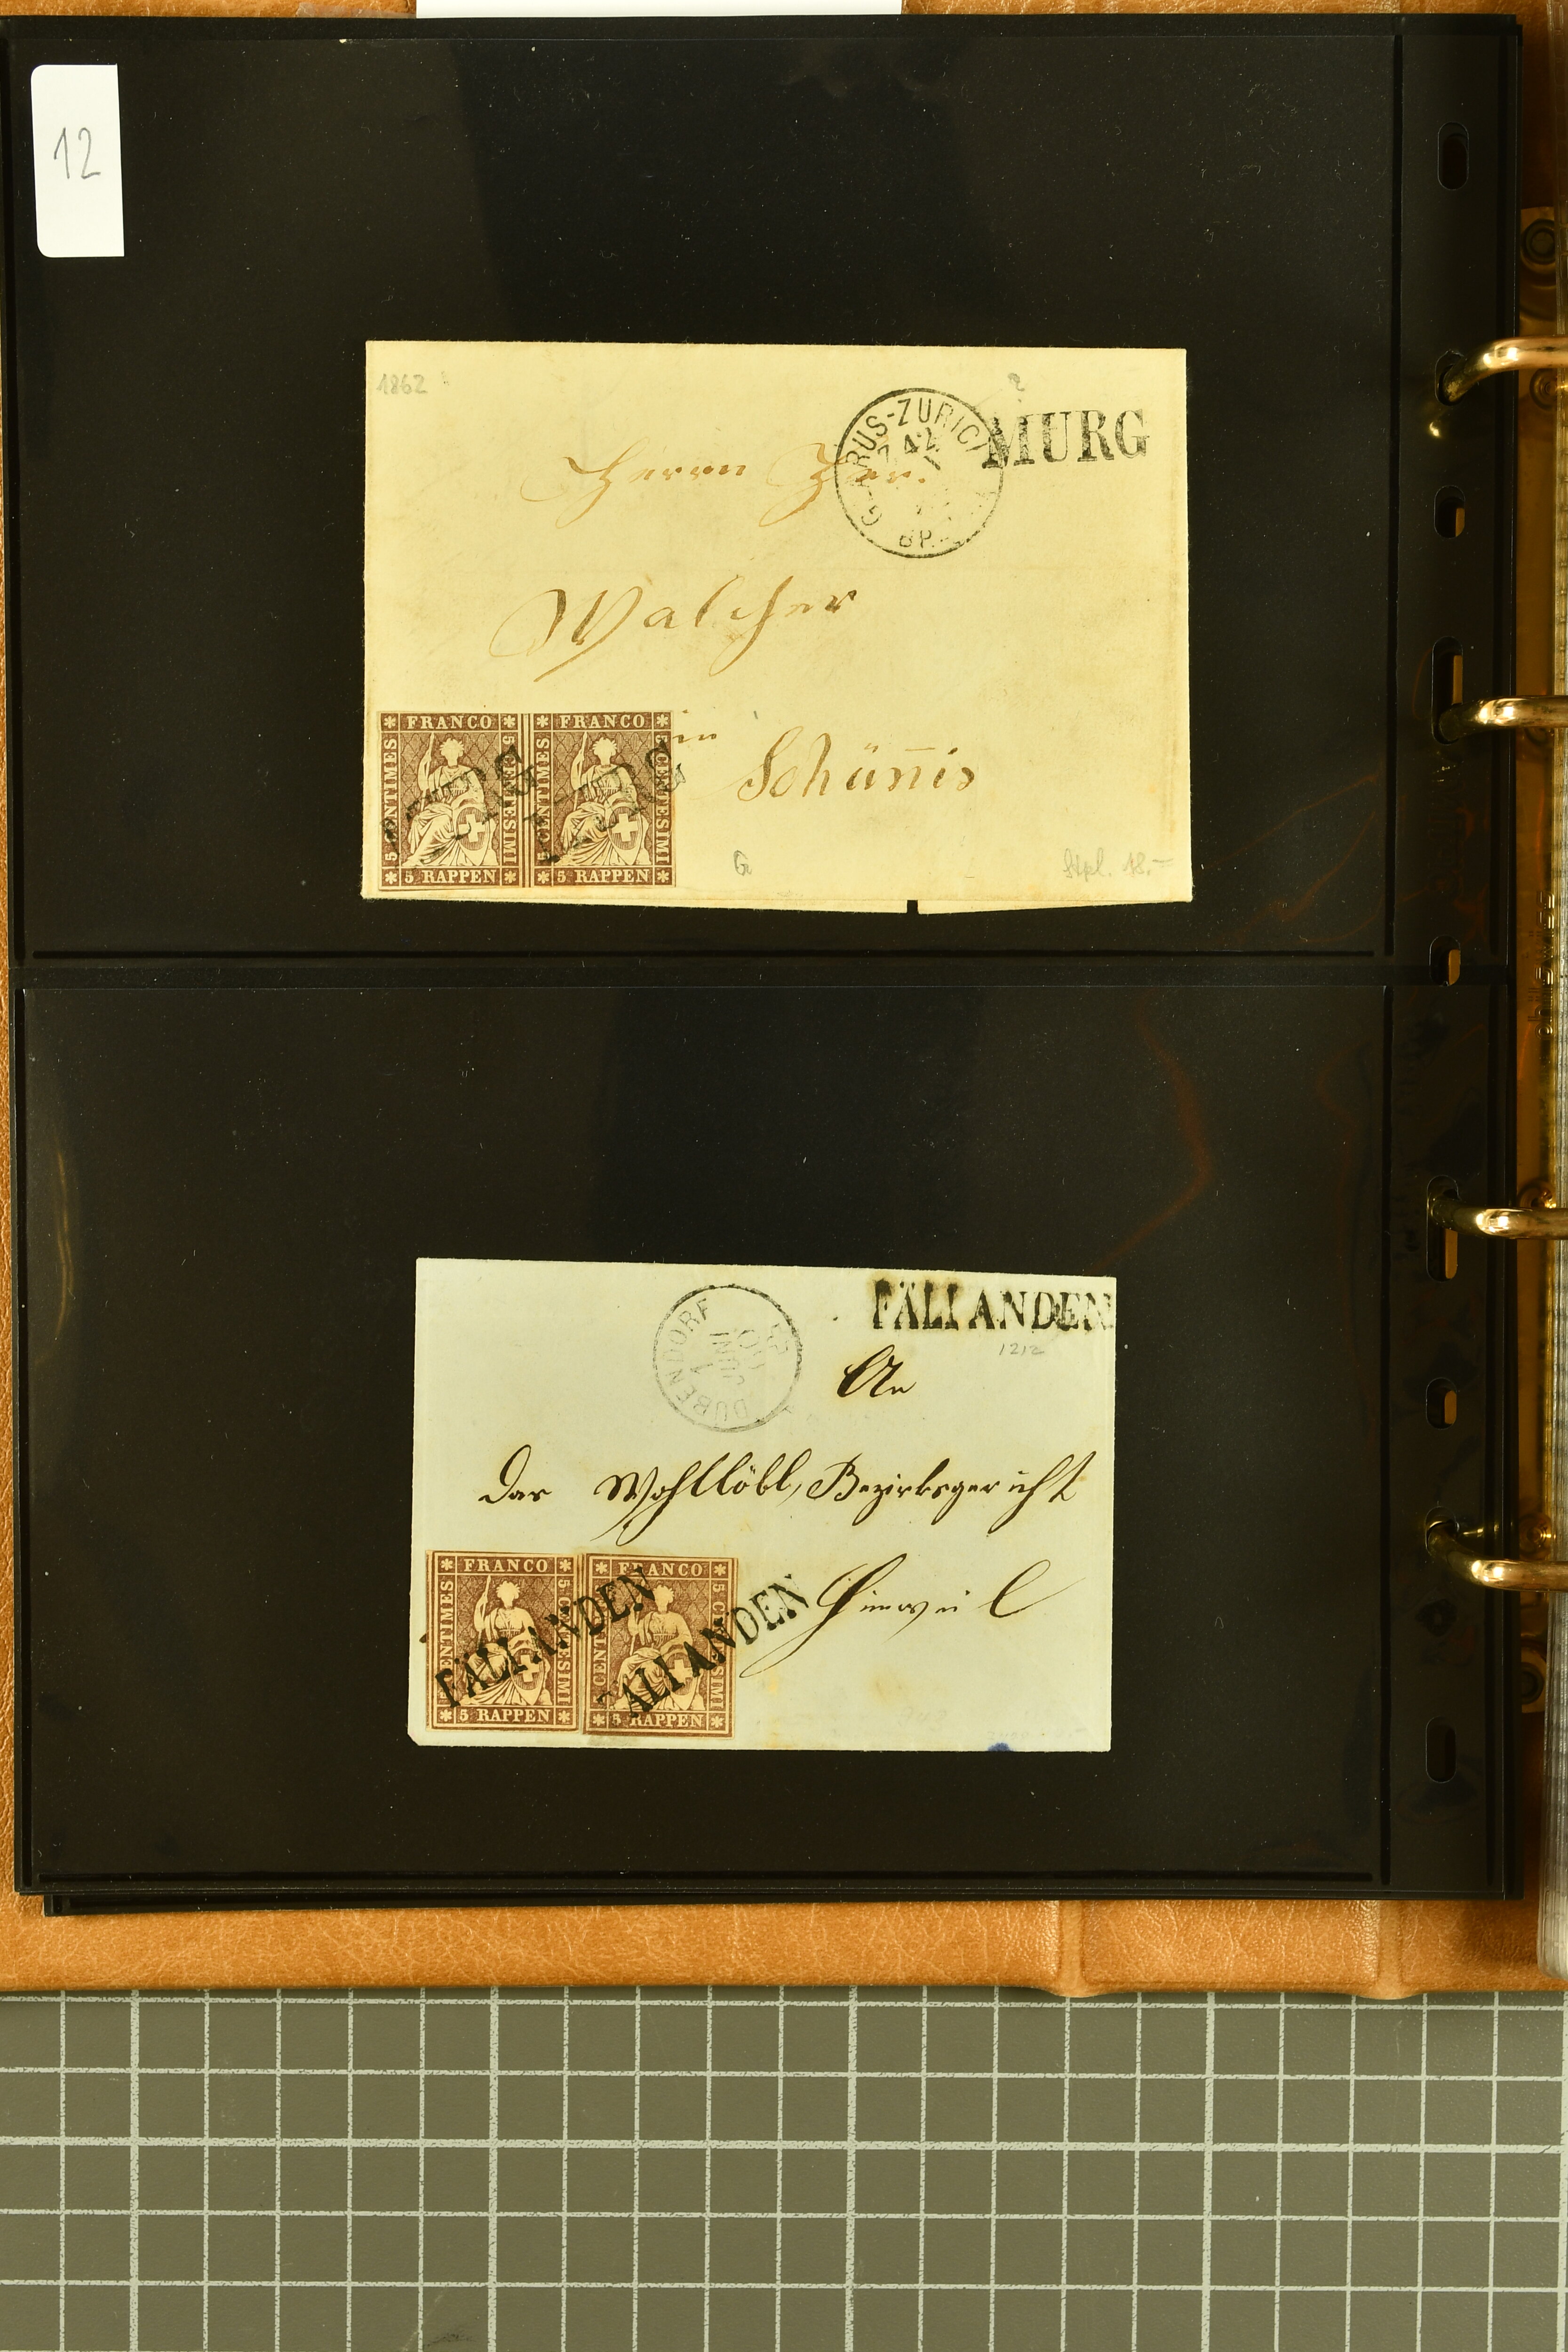 12
1862
GLARUS-ZURICH
MURG
Herrn
Walcher
in
Schänis
FRANCO FRANCO
5 CENTIMES 5 CENTESIMI 5 CENTIMES 5 CENTESIMI
5 RAPPEN 5 RAPPEN
Stpl. 18.-
FÄLLANDEN
1212
DÜBENDORF
1 JUNI 60
An
Das Wohllöbl, Bezirksgericht
Hinweil
FRANCO FRANCO
5 CENTIMES 5 CENTESIMI 5 CENTIMES 5 CENTESIMI
5 RAPPEN 5 RAPPEN
FÄLLANDEN
FÄLLANDEN